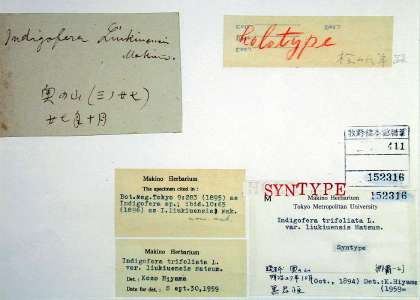 Indigofera Liukiuensis
Makino.
奥の山(三ノ廿七)
廿七年十月
holotype
牧野標本館積葉
411
152316
Makino Herbarium
The specimen cited in :
Bot.Mag.Tokyo 9:283 (1895) as
Indigofera sp.; ibid.10:65
(1896) as I.liukiuensis Mak.
nom. nud.
Makino Herbarium
Indigofera trifoliata L.
var. liukiuensis Matsum.
Det.: Kozo Hiyama
Date for det.: Sept.30,1959
SYNTYPE
152316
Makino Herbarium
Tokyo Metropolitan University
Indigofera trifoliata L.
var. liukiuensis Matsum.
Syntype
琉球 奥ノ山
明治27年10月
(Oct., 1894) Det.:K.Hiyama
(1959=